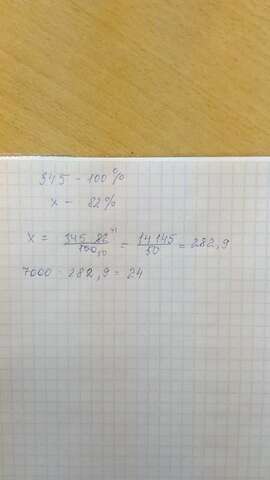 345 - 100%
x - 82%
x = 345 82 41 / 100 50 = 14 145 / 50 = 282,9
7000 : 282,9 = 24